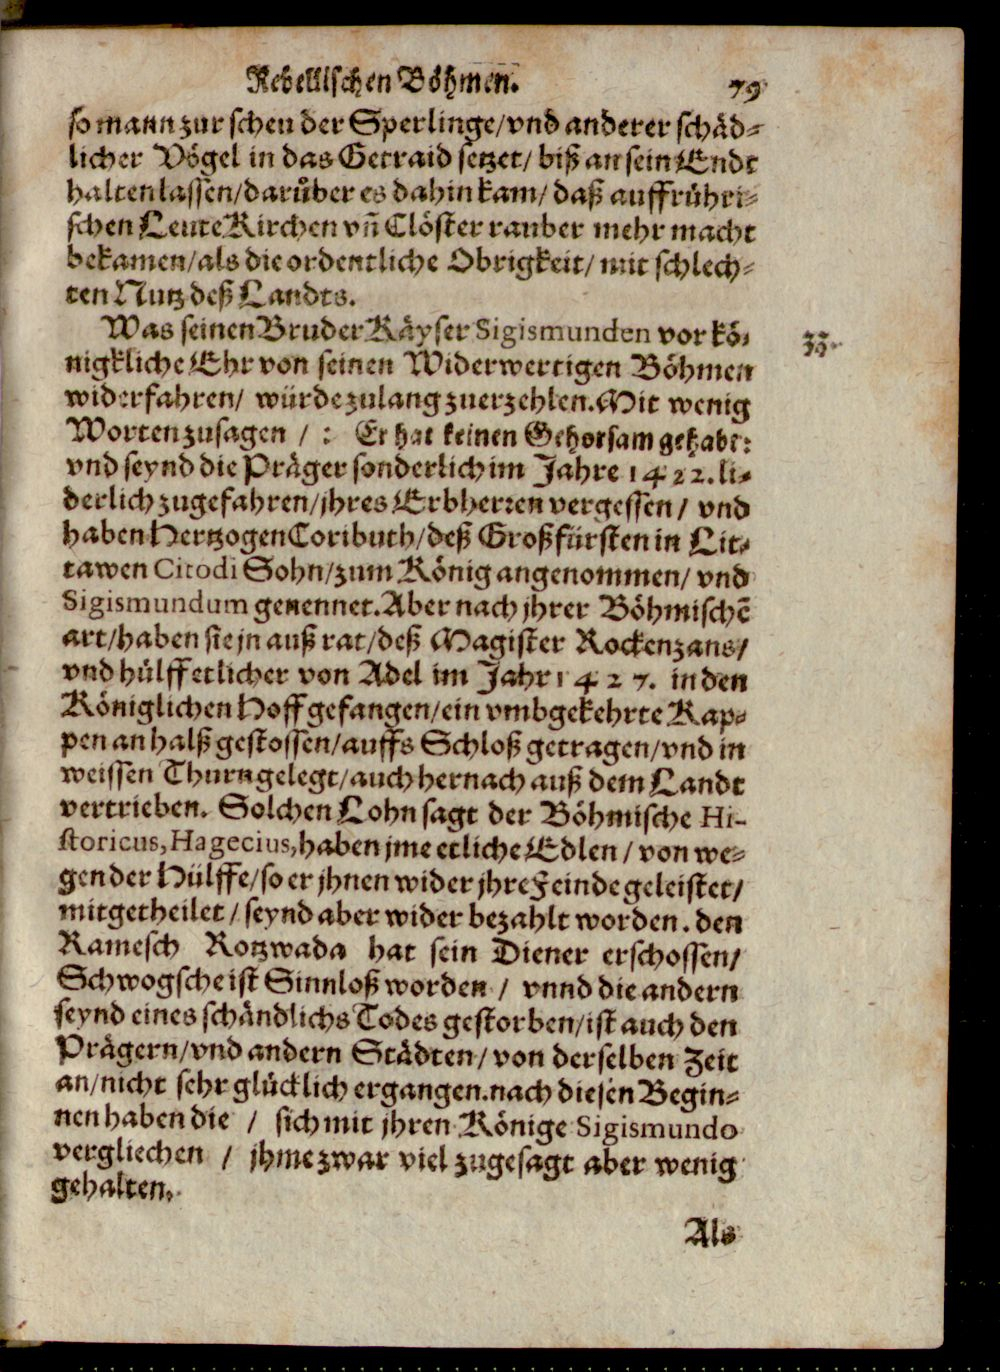 Rebellischen Böhmen. 79
so mann zur scheu der Sperlinge/vnd anderer schäd-
licher Vögel in das Getraid setzet/ biß an sein Endt
halten lassen/darůber es dahin kam/ daß auffrühri-
schen Leute Kirchen vñ Clöster rauber mehr macht
bekamen/als die ordentliche Obrigkeit/ mit schlech-
ten Nutz deß Landts.
Was seinen Bruder Käyser Sigismunden vor kö-
nigkliche Ehr von seinen Widerwertigen Böhmen
widerfahren/ würde zulang zuerzehlen. Mit wenig
Worten zusagen / : Er hat keinen Gehorsam gehabt:
vnd seynd die Präger sonderlich im Jahre 1422. li-
derlich zugefahren/jhres Erbherren vergessen / vnd
haben Hertzogen Coributh/deß Großfürsten in Lit-
tawen Citodi Sohn/zum König angenommen/ vnd
Sigismundum genennet. Aber nach jhrer Böhmischẽ
art/haben sie jn auß rat/deß Magister Rockenzans/
vnd hülff etlicher von Adel im Jahr 1427. in den
Königlichen Hoff gefangen/ein vmbgekehrte Kap-
pen an halß gestossen/auffs Schloß getragen/vnd in
weissen Thurn gelegt/auch hernach auß dem Landt
vertrieben. Solchen Lohn sagt der Böhmische Hi-
storicus, Hagecius, haben jme etliche Edlen / von we-
gen der Hülffe/so er jhnen wider jhre Feinde geleistet/
mitgetheilet / seynd aber wider bezahlt worden. den
Ramesch Rotzwada hat sein Diener erschossen/
Schwogsche ist Sinnloß worden / vnnd die andern
seynd eines schändlichs Todes gestorben/ist auch den
Prägern/vnd andern Städten/ von derselben Zeit
an/nicht sehr glücklich ergangen. nach diesen Begin-
nen haben die / sich mit jhren Könige Sigismundo
vergliechen / jhme zwar viel zugesagt aber wenig
gehalten.
Als